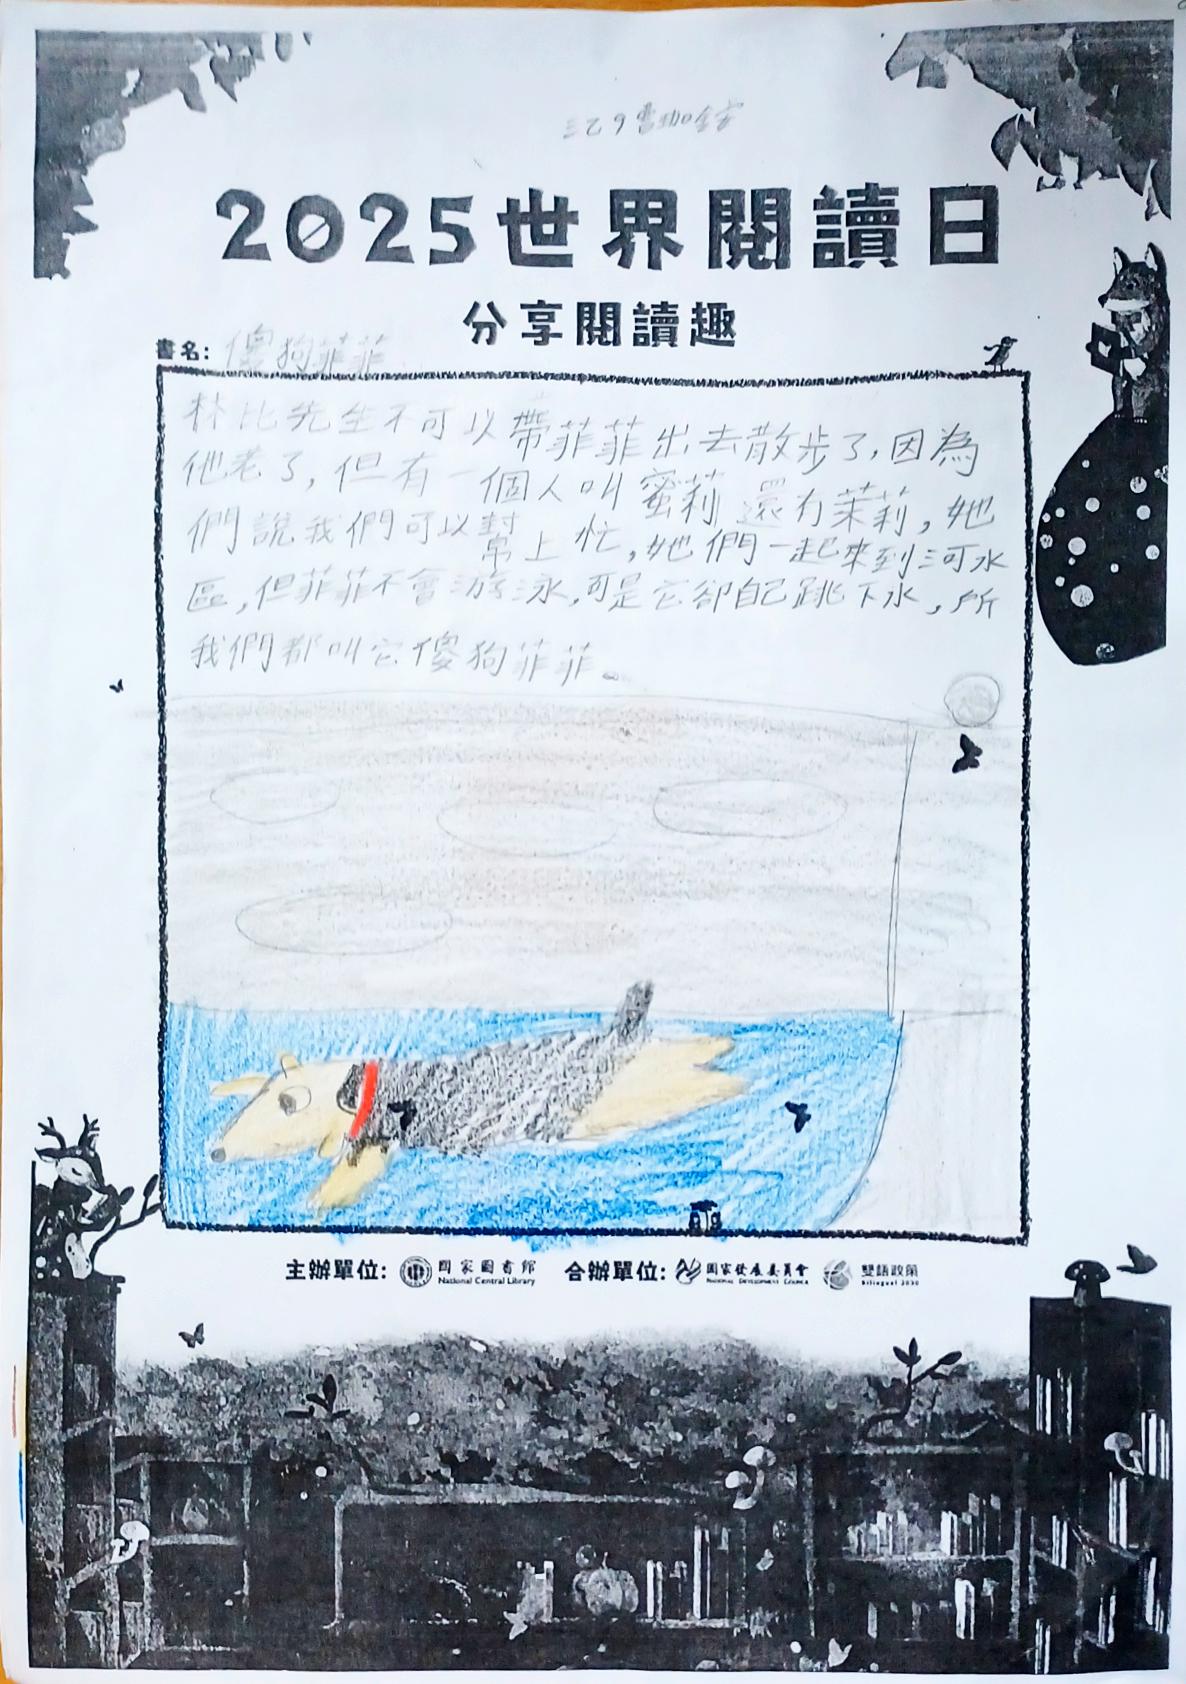 三乙6
2025世界閱讀日
分享閱讀趣
書名: 傻狗菲菲
林比先生不可以帶菲菲出去散步了,因為
他老了,但有一個人叫蜜莉還有茉莉,她
們說我們可以幫上忙,她們一起來到河水
區,但菲菲不會游泳,可是它卻自己跳下水,所
我們都叫它傻狗菲菲。
主辦單位: 國家圖書館 National Central Library 合辦單位: 國家發展委員會 National Development Council 雙語政策 Bilingual 2030